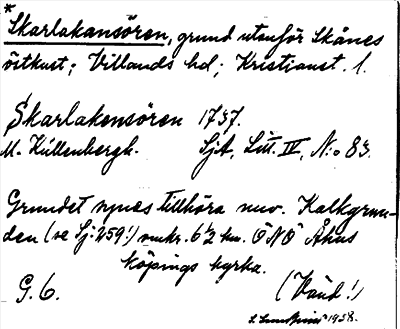 *
Skarlakansören, grund utanför Skånes
östkust; Villands hd; Kristianst. l.
Skarlakensören 1737.
M. Küllenbergh. SjA, Litt. IV, N:o 83.
Grundet synes tillhöra nuv. Kalkgrun-
den (se Sj: 259!) omkr. 6 1/2 km. ÖNÖ Åhus
köpings kyrka.
G. 6. (Vänd!)
1938.